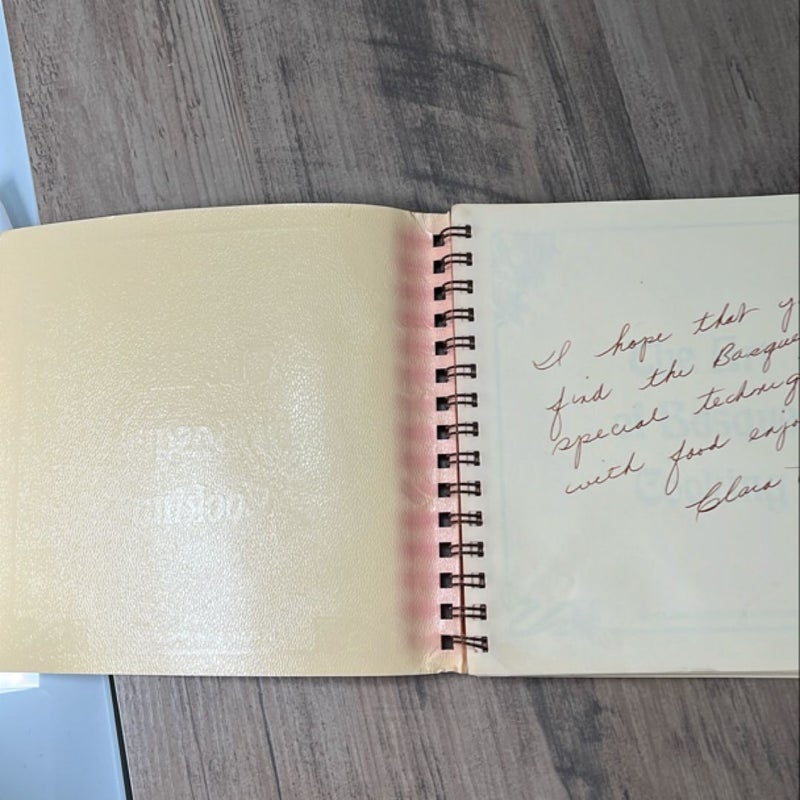 I hope that y
find the Basque
special techniq
with food enjo
Clara